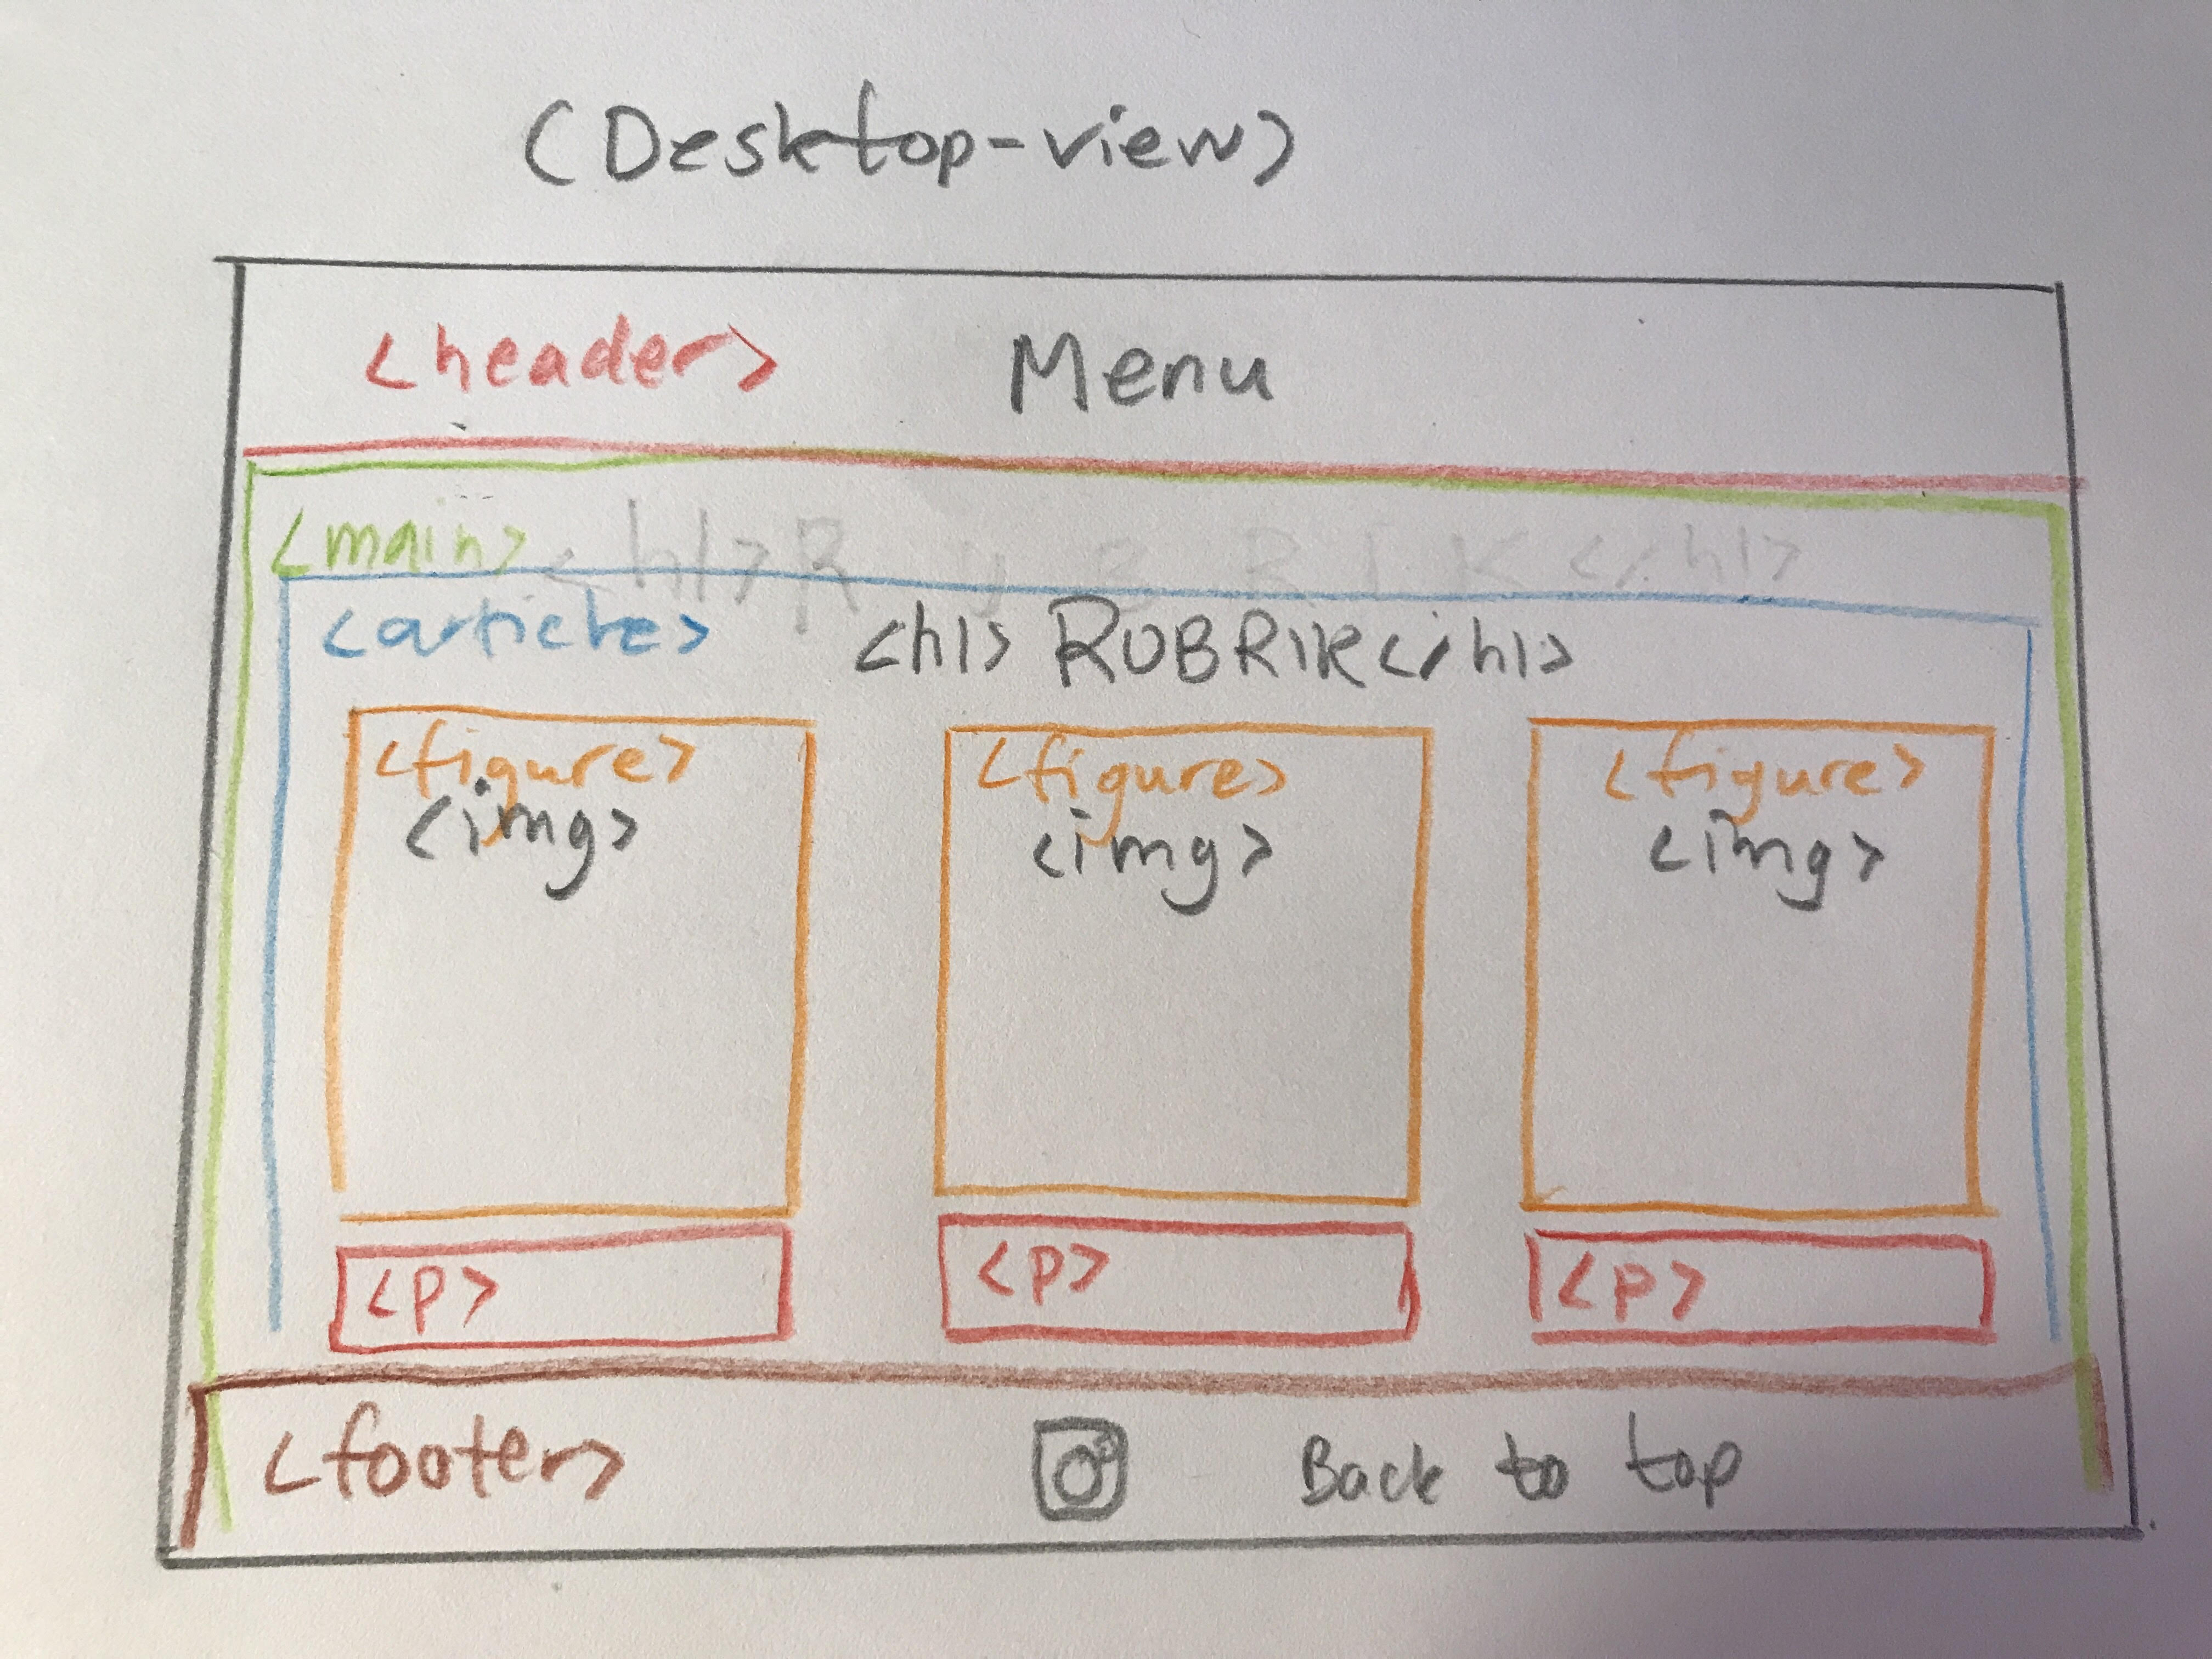 (Desktop-view)
<header> Menu
<main> <h1>RUBRIK</h1>
<article> <h1>RUBRIK</h1>
<figure> <figure> <figure>
<img> <img> <img>
<p> <p> <p>
<footer> Back to top